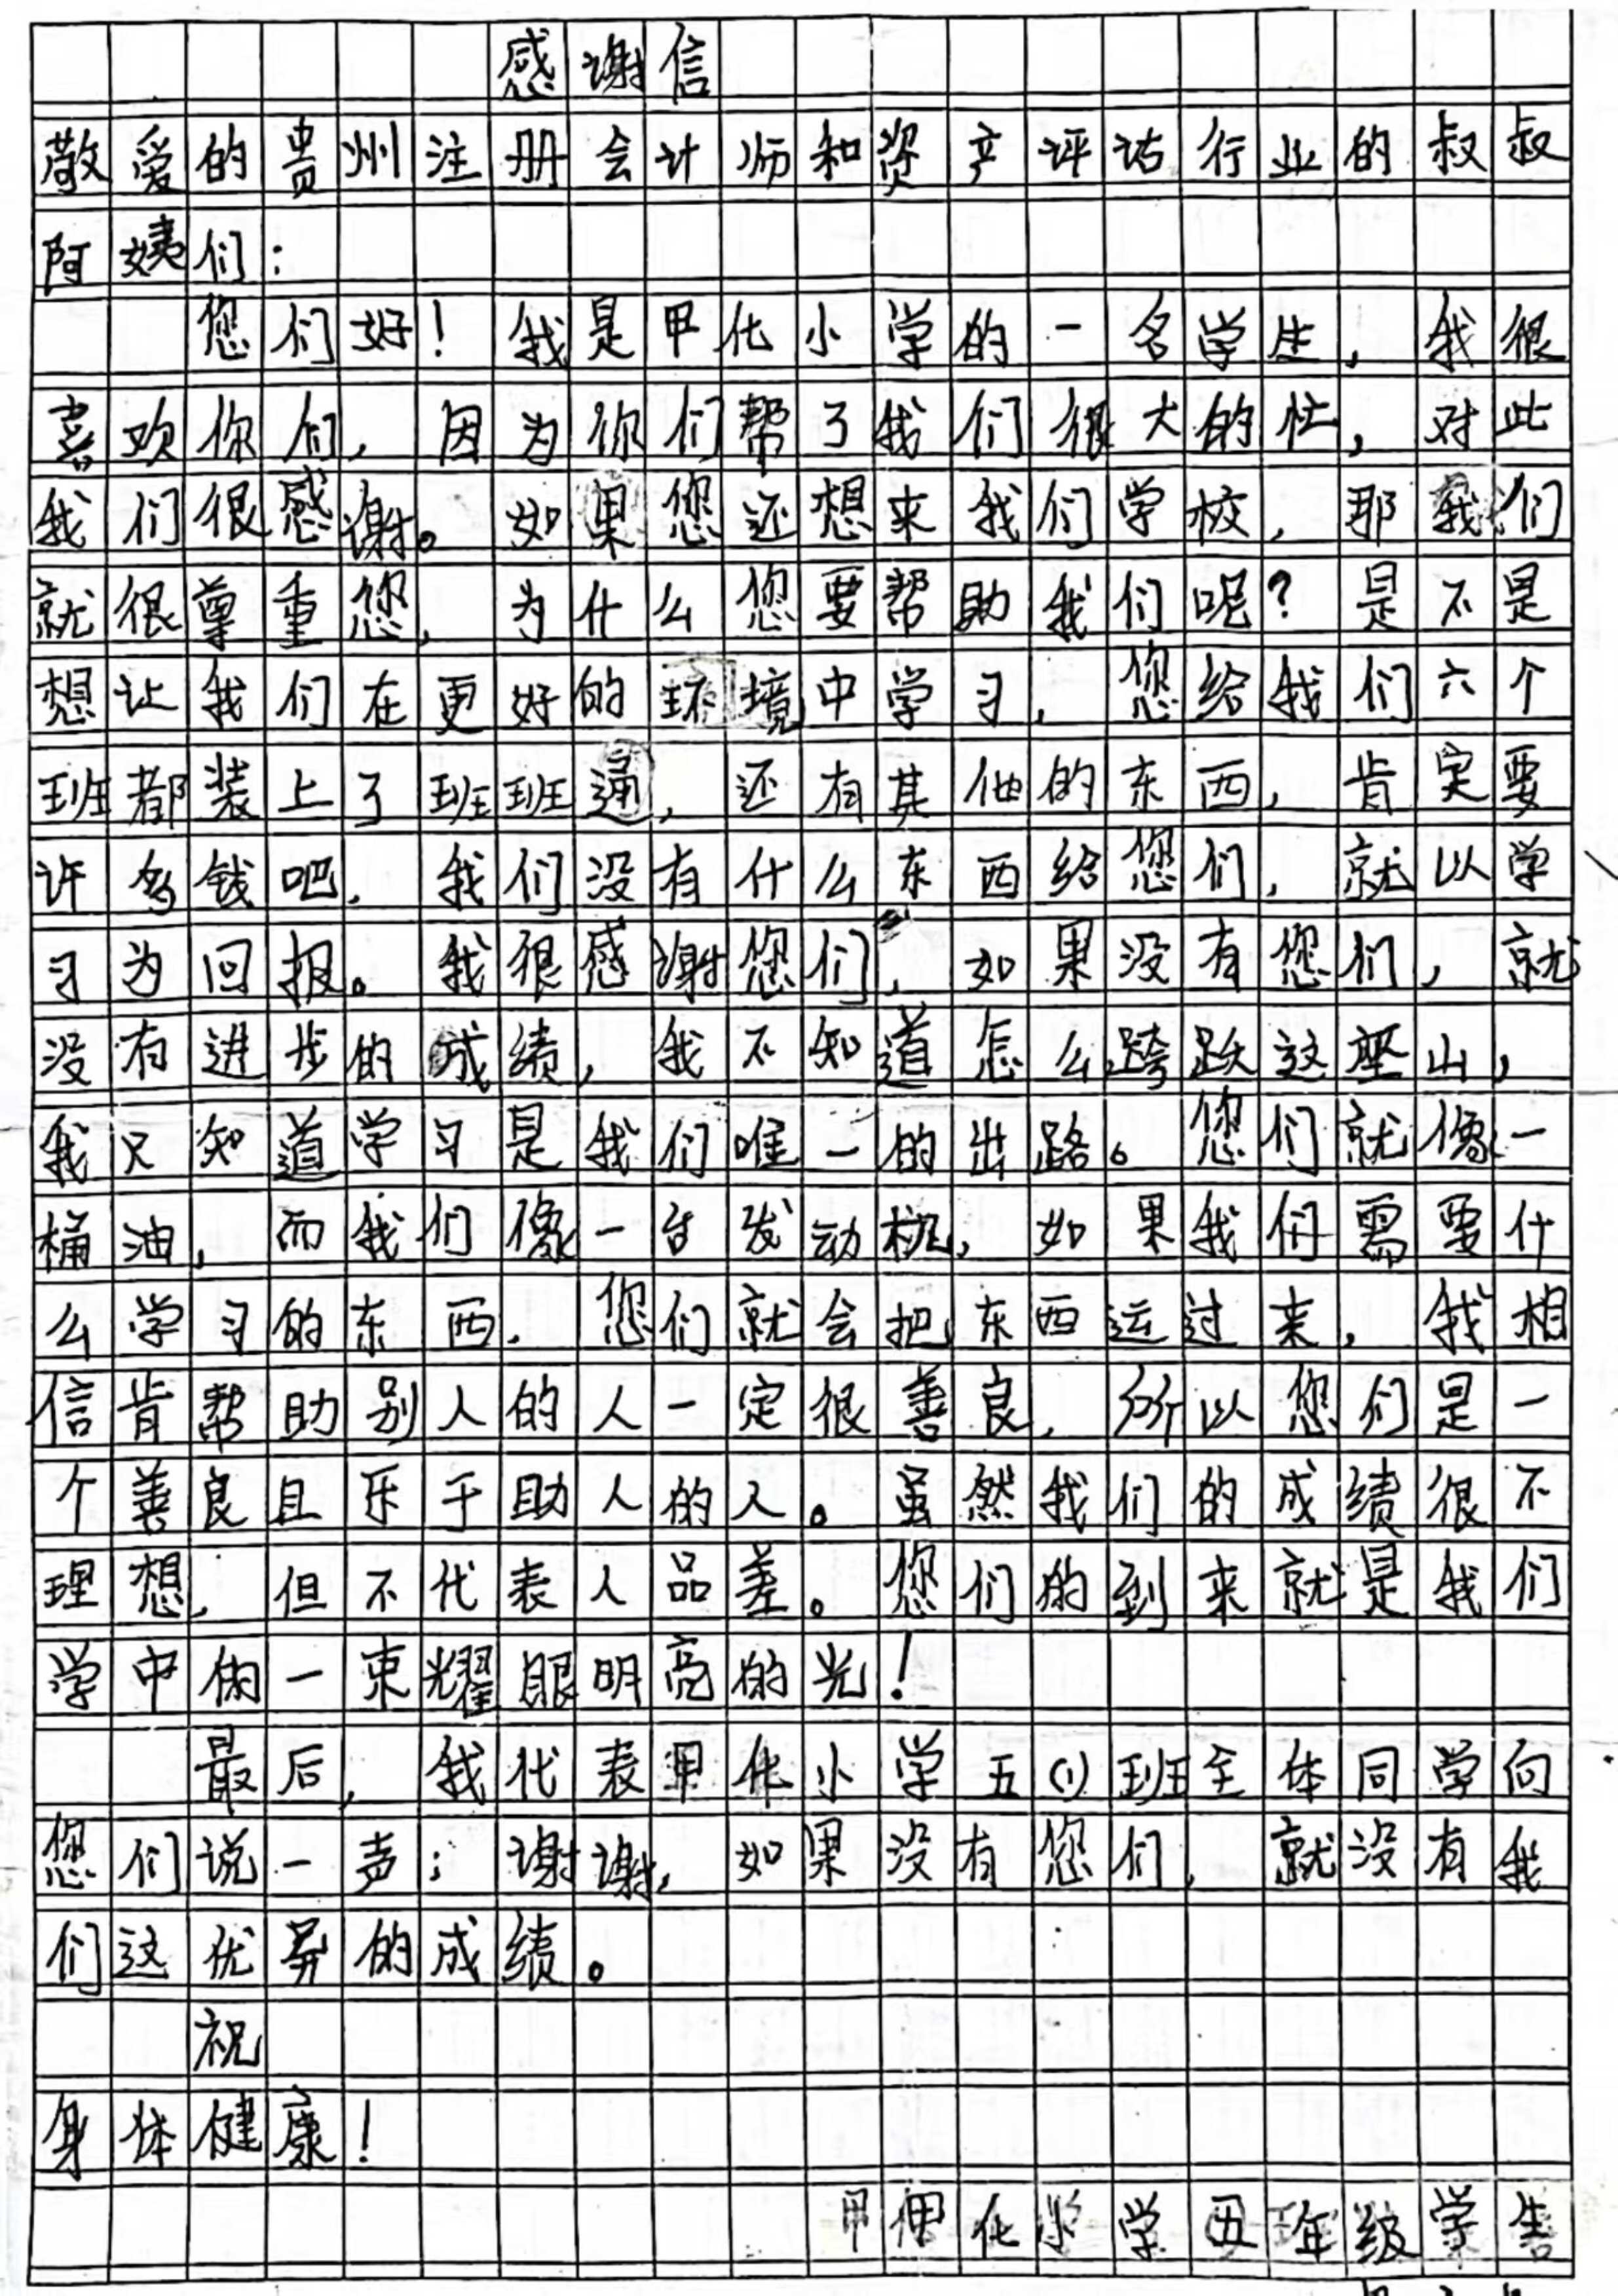 感谢信
敬爱的贵州注册会计师和资产评估行业的叔叔
阿姨们：
您们好！我是甲化小学的一名学生，我很
喜欢你们，因为你们帮了我们很大的忙，对此
我们很感谢。如果您还想来我们学校，那我们
就很尊重您，为什么您要帮助我们呢？是不是
想让我们在更好的环境中学习，您给我们六个
班都装上了班班通，还有其他的东西，肯定要
许多钱吧，我们没有什么东西给您们，就以学
习为回报。我很感谢您们，如果没有您们，就
没有进步的成绩，我不知道怎么跨跃这座山，
我只知道学习是我们唯一的出路。您们就像一
桶油，而我们像一台发动机，如果我们需要什
么学习的东西，您们就会把东西运过来，我相
信肯帮助别人的人一定很善良，所以您们是一
个善良且乐于助人的人。虽然我们的成绩很不
理想，但不代表人品差。您们的到来就是我们
学中的一束耀眼明亮的光！
最后，我代表甲化小学五(1)班全体同学向
您们说一声：谢谢，如果没有您们，就没有我
们这优异的成绩。
祝
身体健康！
甲化小学五年级学生